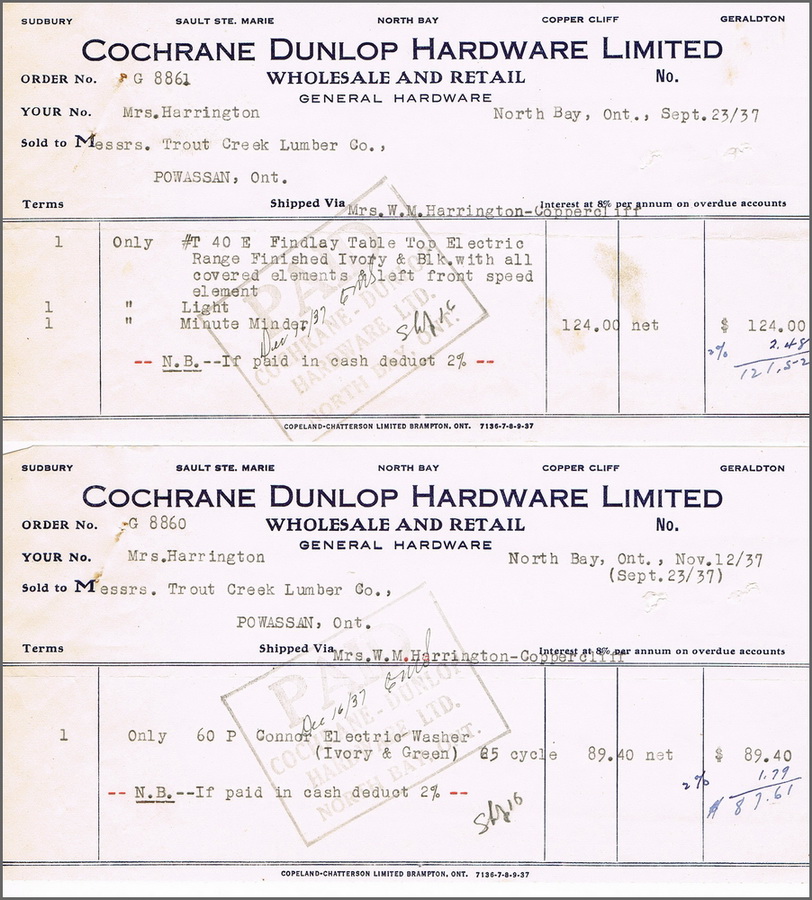 SUDBURY SAULT STE. MARIE NORTH BAY COPPER CLIFF GERALDTON
COCHRANE DUNLOP HARDWARE LIMITED
ORDER No. G 8861 WHOLESALE AND RETAIL No.
GENERAL HARDWARE
YOUR No. Mrs.Harrington North Bay, Ont., Sept.23/37
Sold to Messrs. Trout Creek Lumber Co.,
POWASSAN, Ont.
Terms Shipped Via Mrs.W.M.Harrington-Coppercliff Interest at 8% per annum on overdue accounts
1 Only #T 40 E Findlay Table Top Electric
Range Finished Ivory & Blk.with all
covered elements & left front speed
element
1 " Light
1 " Minute Minder 124.00 net $ 124.00
2% 2.48
121.52
-- N.B.--If paid in cash deduct 2% --
PAID
Dec 16/37
COCHRANE-DUNLOP
HARDWARE LTD.
NORTH BAY ONT.
COPELAND-CHATTERSON LIMITED BRAMPTON, ONT. 7136-7-8-9-37
SUDBURY SAULT STE. MARIE NORTH BAY COPPER CLIFF GERALDTON
COCHRANE DUNLOP HARDWARE LIMITED
ORDER No. G 8860 WHOLESALE AND RETAIL No.
GENERAL HARDWARE
YOUR No. Mrs.Harrington North Bay, Ont., Nov.12/37
(Sept.23/37)
Sold to Messrs. Trout Creek Lumber Co.,
POWASSAN, Ont.
Terms Shipped Via Mrs.W.M.Harrington-Coppercliff Interest at 8% per annum on overdue accounts
PAID
Dec 16/37
COCHRANE-DUNLOP
HARDWARE LTD.
NORTH BAY ONT.
1 Only 60 P Connor Electric Washer
(Ivory & Green) 25 cycle 89.40 net $ 89.40
2% 1.79
$ 87.61
-- N.B.--If paid in cash deduct 2% --
COPELAND-CHATTERSON LIMITED BRAMPTON, ONT. 7136-7-8-9-37